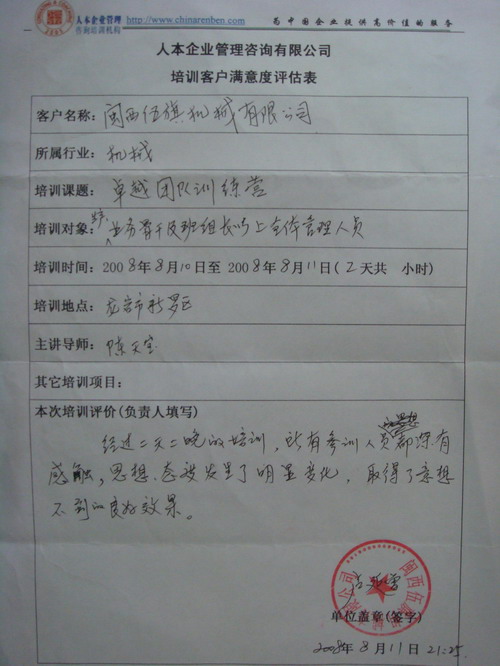 人本企业管理
咨询培训机构
http://www.chinarenben.com
为中国企业提供高价值的服务
人本企业管理咨询有限公司
培训客户满意度评估表
客户名称：闽西伍旗机械有限公司
所属行业：机械
培训课题：卓越团队训练营
培训对象：业务骨干及班组长以上全体管理人员
培训时间：2008年8月10日至2008年8月11日（2天共 小时）
培训地点：龙岩市新罗区
主讲导师：陈天宝
其它培训项目：
本次培训评价(负责人填写)
经过二天二晚的培训，所有参训人员都深有
感触，思想、态度发生了明显变化，取得了意想
不到的良好效果。
单位盖章(签字)
2008年8月11日 21:25